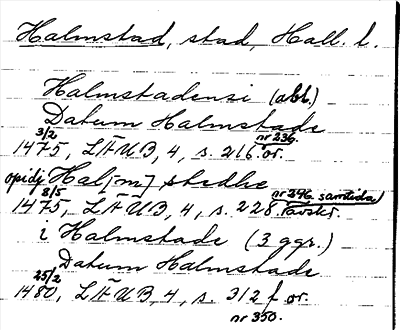 Halmstad, stad, Hall. l.
Halmstadensi (abl.)
Datum Halmstade
3/2 nr 236.
1475, LÄUB, 4, s. 216 or.
opidj Hal[m]stedhe
8/5 nr 246. samtida
1475, LÄUB, 4, s. 228 avskr.
i Halmstade (3 ggr.)
Datum Halmstade
25/2
1480, LÄUB, 4, s. 312 f or.
nr 350.